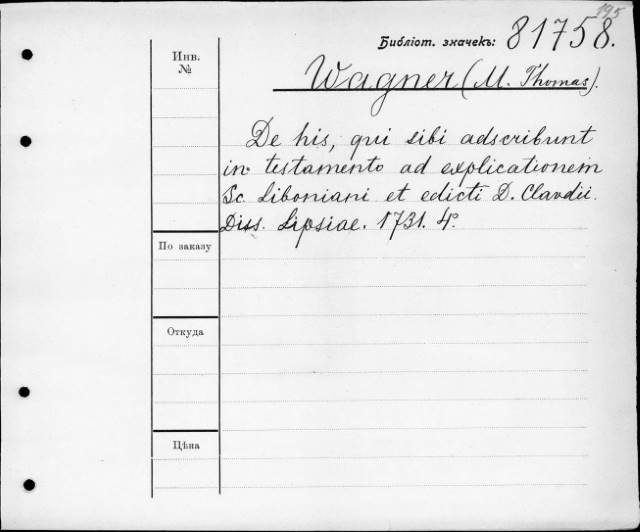 195
Библіот. значекъ: 81758.
Инв.
№
Wagner (M. Thomas).
De his, qui sibi adscribunt
in testamento ad explicationem
Sc. Liboniani et edicti D. Claudii.
Diss. Lipsiae. 1731. 4º
По заказу
Откуда
Цѣна